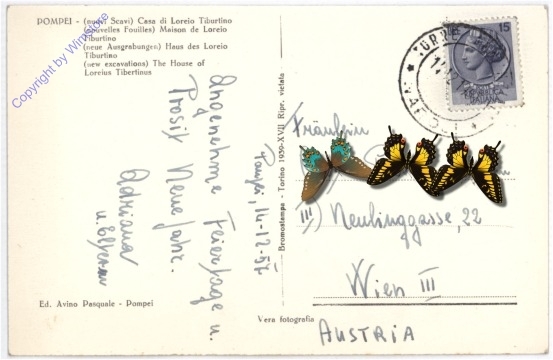 POMPEI - (nuovi Scavi) Casa di Loreio Tiburtino
(nouvelles Fouilles) Maison de Loreio
Tiburtino
(neue Ausgrabungen) Haus des Loreio
Tiburtino
(new excavations) The House of
Loreius Tibertinus
Copyright by WimStore
Angenehme Feiertage u.
Prosit Neue Jahr.
Adriana
Pompei, 14-12-57
Ed. Avino Pasquale - Pompei
Bromostampa - Torino 1939-XVII Ripr. vietata
Vera fotografia
15
ITALIANA
Fräulein
III) Neulinggasse, 22
Wien III
AUSTRIA